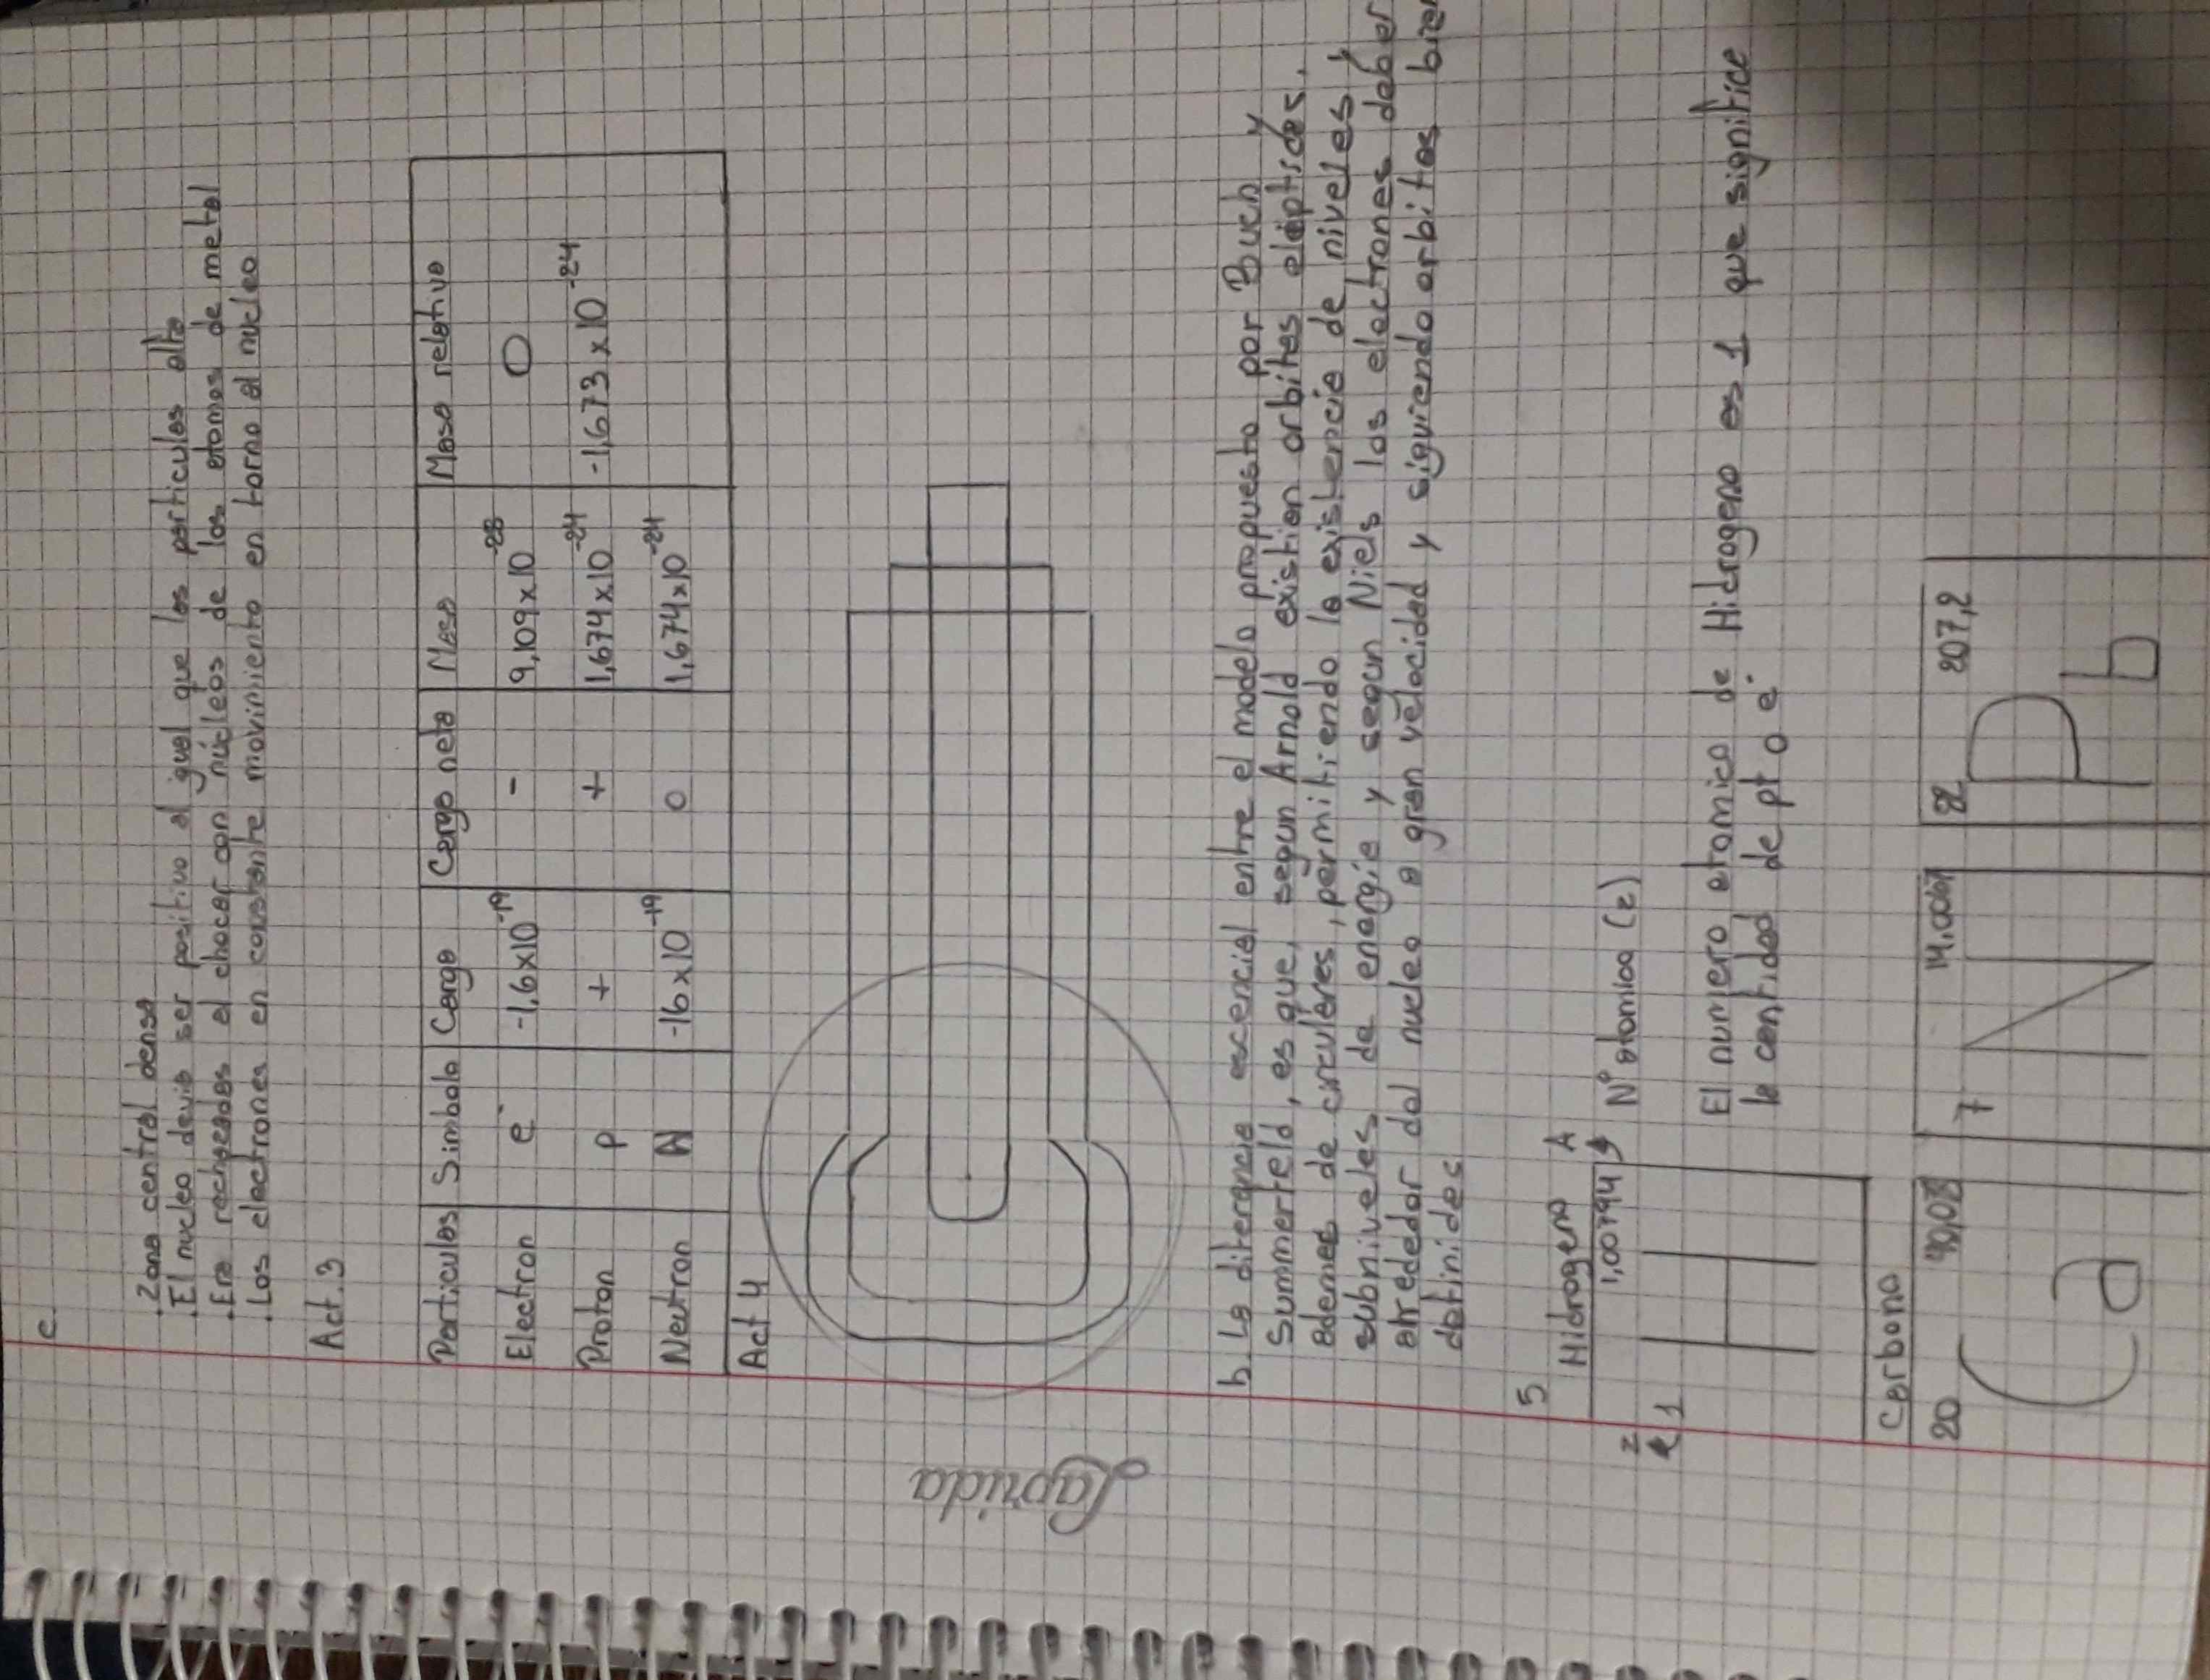 c.
. Zona central densa
. El nucleo devió ser positivo al igual que las particulas alfa
. Era rechazadas al chocar con núcleos de los atomos de metal
. Los electrones en constante movimiento en torno al nucleo
Act. 3
Particulas Simbolo Carga Carga neta Masa Masa relativa
Electron e⁻ -1,6x10⁻¹⁹ - 9,109x10⁻²⁸ 0
Proton p + + 1,674x10⁻²⁴ -1,673x10⁻²⁴
Neutron N -16x10⁻¹⁹ 0 1,674x10⁻²⁴
Act 4
Laprida
b. La diferencia escencial entre el modelo propuesto por Buch y
Summerfeld, es que, segun Arnold existian orbitas elípticas,
ademas de circulares, permitiendo la existencia de niveles y
subniveles de energía y segun Niels los electrones deber
alrededor del nucleo a gran velocidad y siguiendo orbitas bien
definidas
5
Hidrogeno A
Z 1 1,00794 N° atomico (z)
H
El numero atomico de Hidrogeno es 1 que significa
la cantidad de p+ o e⁻
Carbono
20 40,08 7 14,0067 82 207,2
Ca N Pb